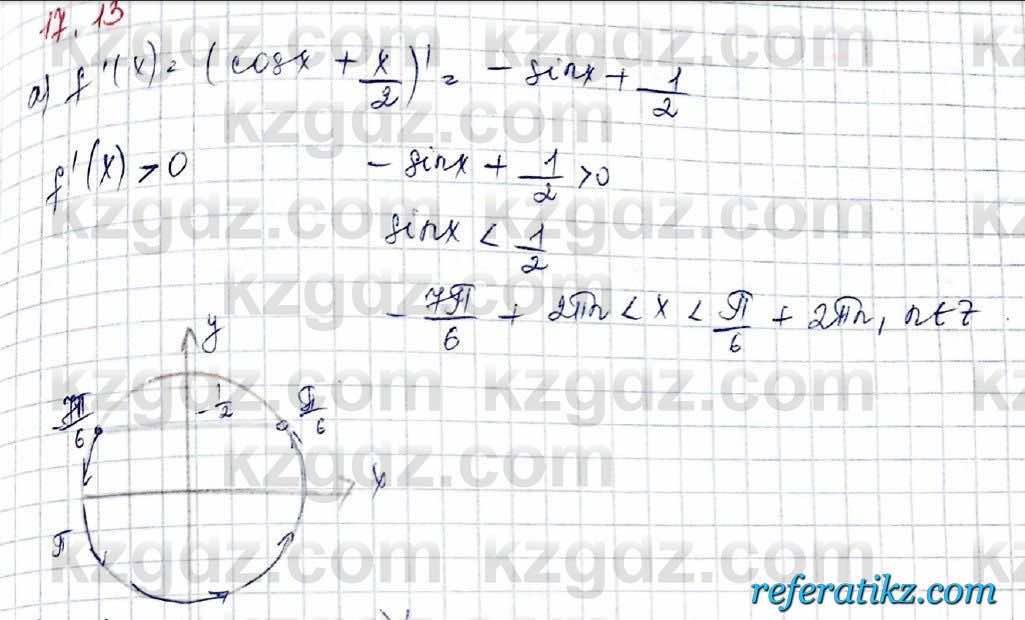 17.13
а) f'(x) = (cosx + x/2)' = - sinx + 1/2
f'(x) > 0 - sinx + 1/2 > 0
sinx < 1/2
- 7π/6 + 2πn < x < π/6 + 2πn, n∈Z
y
7π/6 - 1/2 π/6
x
π
kzgdz.com
referatikz.com